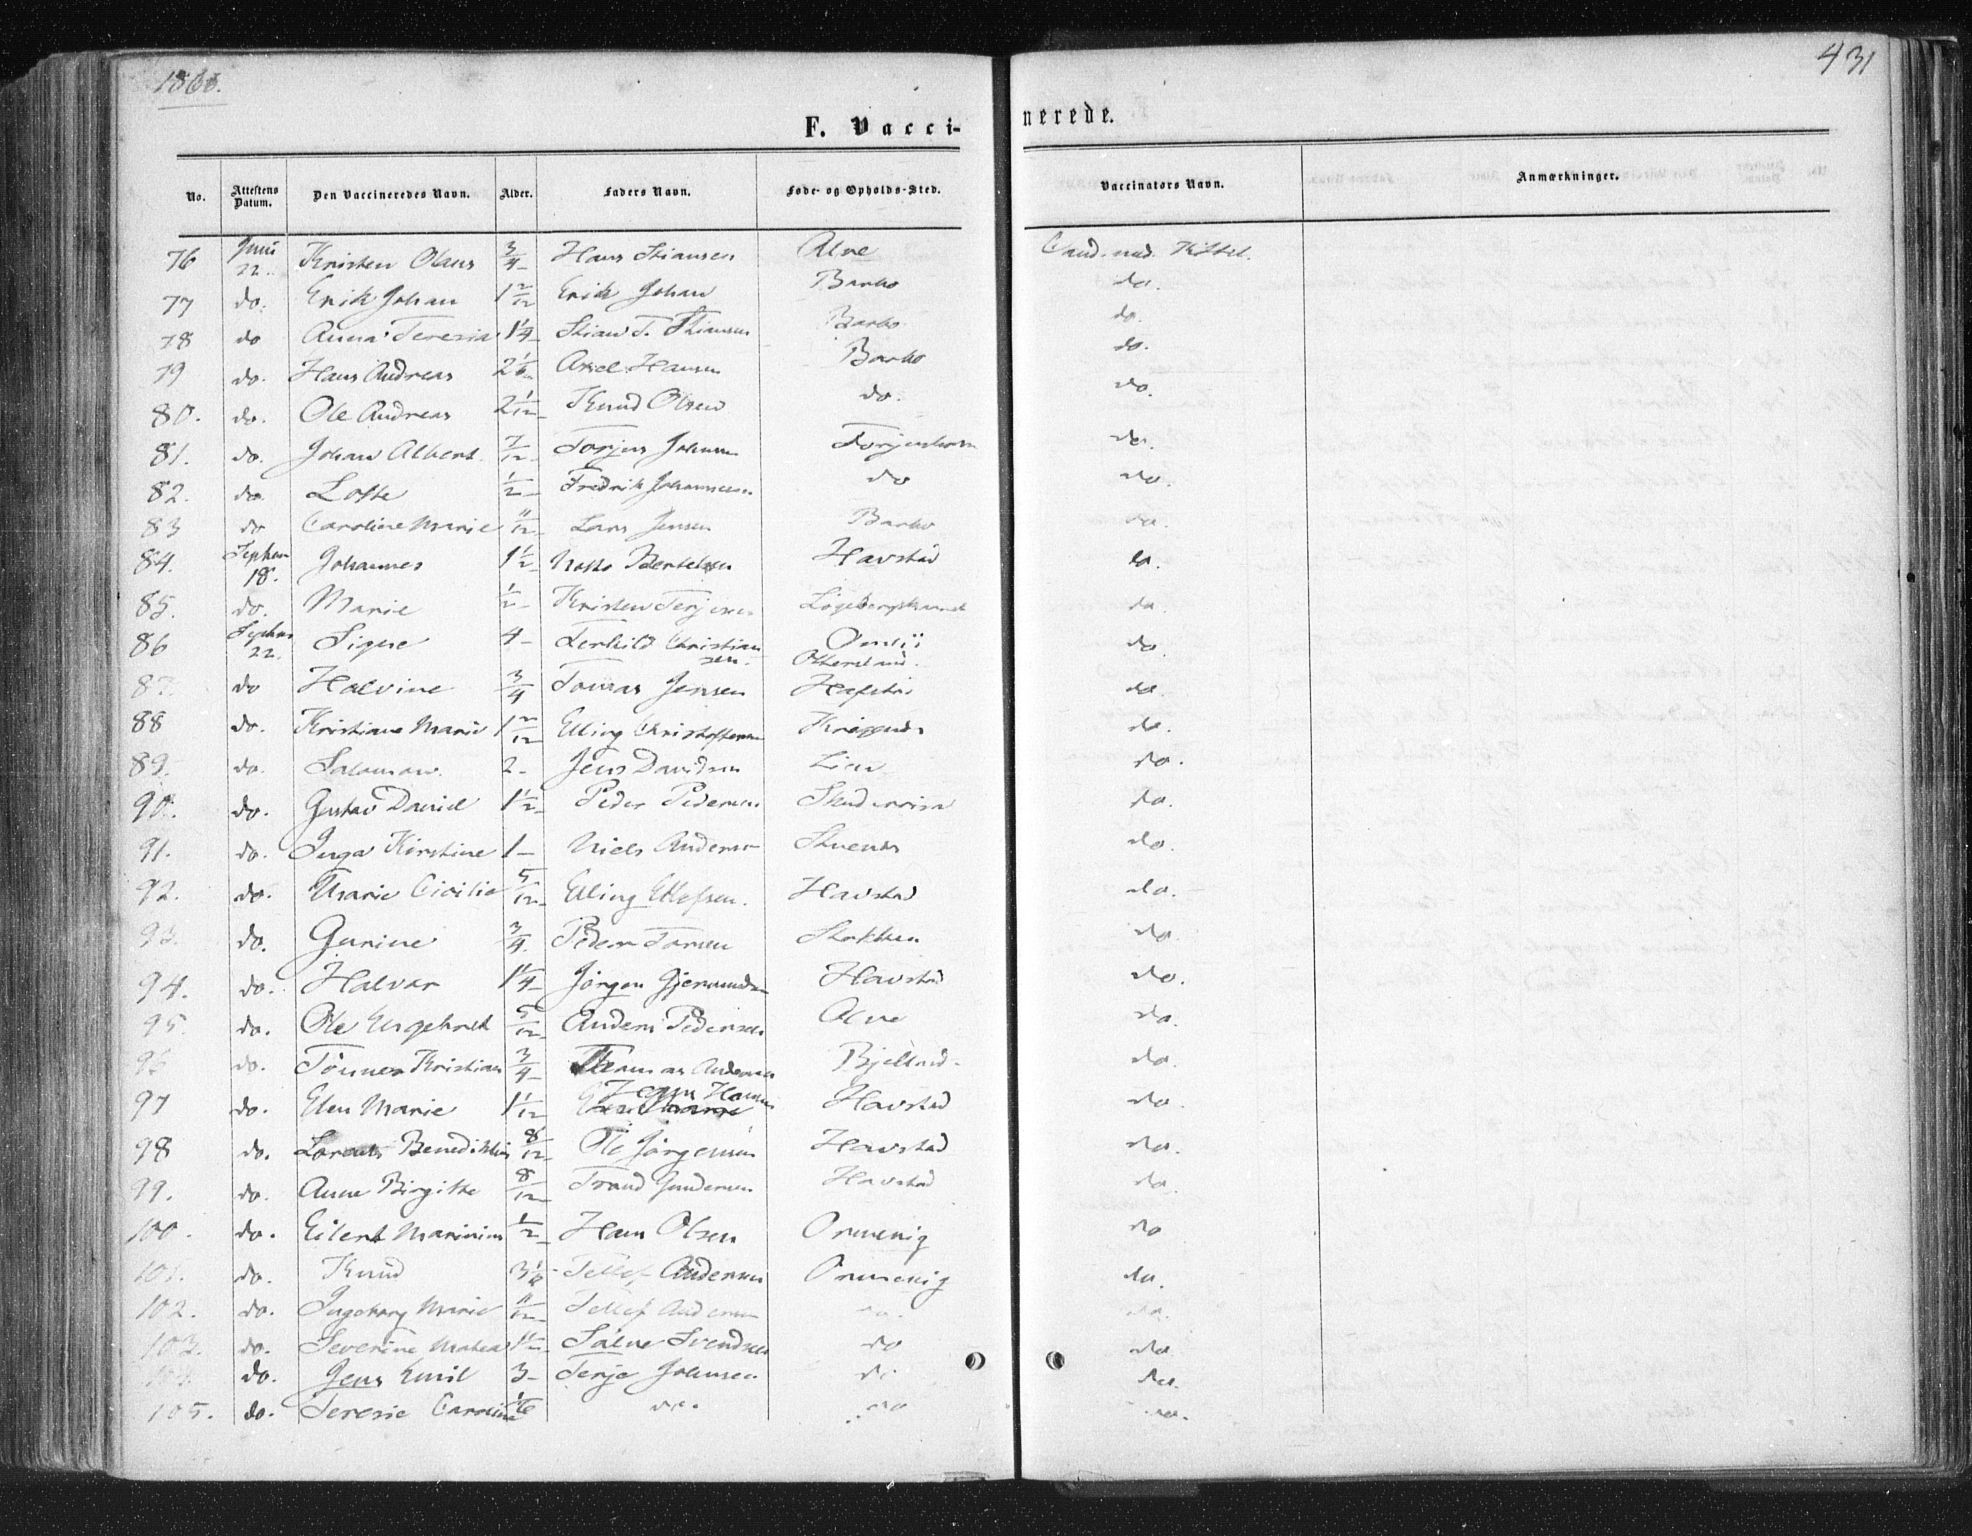 431
F. Vacci-nerede.
No. Attestens Datum. Den Vaccineredes Navn. Alder. Faders Navn. Føde- og Opholds-Sted. Vaccinators Navn. Anmærkninger.
76 Juni 22. Kristen Olaus 3/4 Hans Stiansen Alve Cand. med. Kittel.
77 do. Erik Johan 1 2/12 Erik Johan Barbo do.
78 do Anna Teresia 1 1/4 Stian T. Stiansen Barbo do.
79 do. Hans Andreas 2 1/6 Axel Hansen Barbo do.
80. do. Ole Andreas 2 1/12 Knud Olsen do. do.
81. do. Johan Albert 7/12 Torjus Johnsen do.
82. do. Lotte 1/2 Fredrik Johannesen do do.
83 do Caroline Marie 11/12 Lars Jensen Barbo do.
84. Septem 18. Johannes 1 1/2 Bertelsen Havstad do.
85. do. Marie 1/2 Kristen Terjesen do.
86 Septem 22. Signe 4 Terkild Christiansen. do.
87. do Halvine 3/4 Tomas Jensen Hafstad do.
88 do. Kristiane Marie 1 2/12 Elling Christoffersen do.
89. do. Salamon 2 Jens Davidsen Lien do.
90. do. Gustav Daniel 1 1/2 Peder Pedersen do.
91. do. Inga Kirstine 1 Niels Andersen do.
92. do. Marie Cicilie 5/12 Elling Ellefsen. Havstad do.
93. do. Gurine 3/4 Peder Torsen Stokken do.
94. do. Halvor 1 1/4 Jörgen Gjermundsen Havstad do.
95. do. Ole Engebret 5/12 Anders Pedersen Alve do.
96 do. Tönnes Kristian 3/4 Thomas Andersen Bjelland. do.
97 do. Elen Marie 1 1/12 Hansen Havstad do.
98 do. Benedikte 8/12 Ole Jörgensen Havstad do.
99. do. Anne Birgitte 8/12 Trond Gundersen Havstad do.
100. do. Eilert 1/2 Hans Olsen Ormevig do
101. do. Knud 3 1/6 Tellef Andersen Ormevig do.
102. do. Ingeborg Marie 11/12 Tellef Andersen do. do.
103. do. Severine Mathea 1 1/2 Salve Svendsen do do.
104. do. Jens Emil 3 Terje Johnsen do do.
105. do. Teresie Caroline 1/6 do. do do.